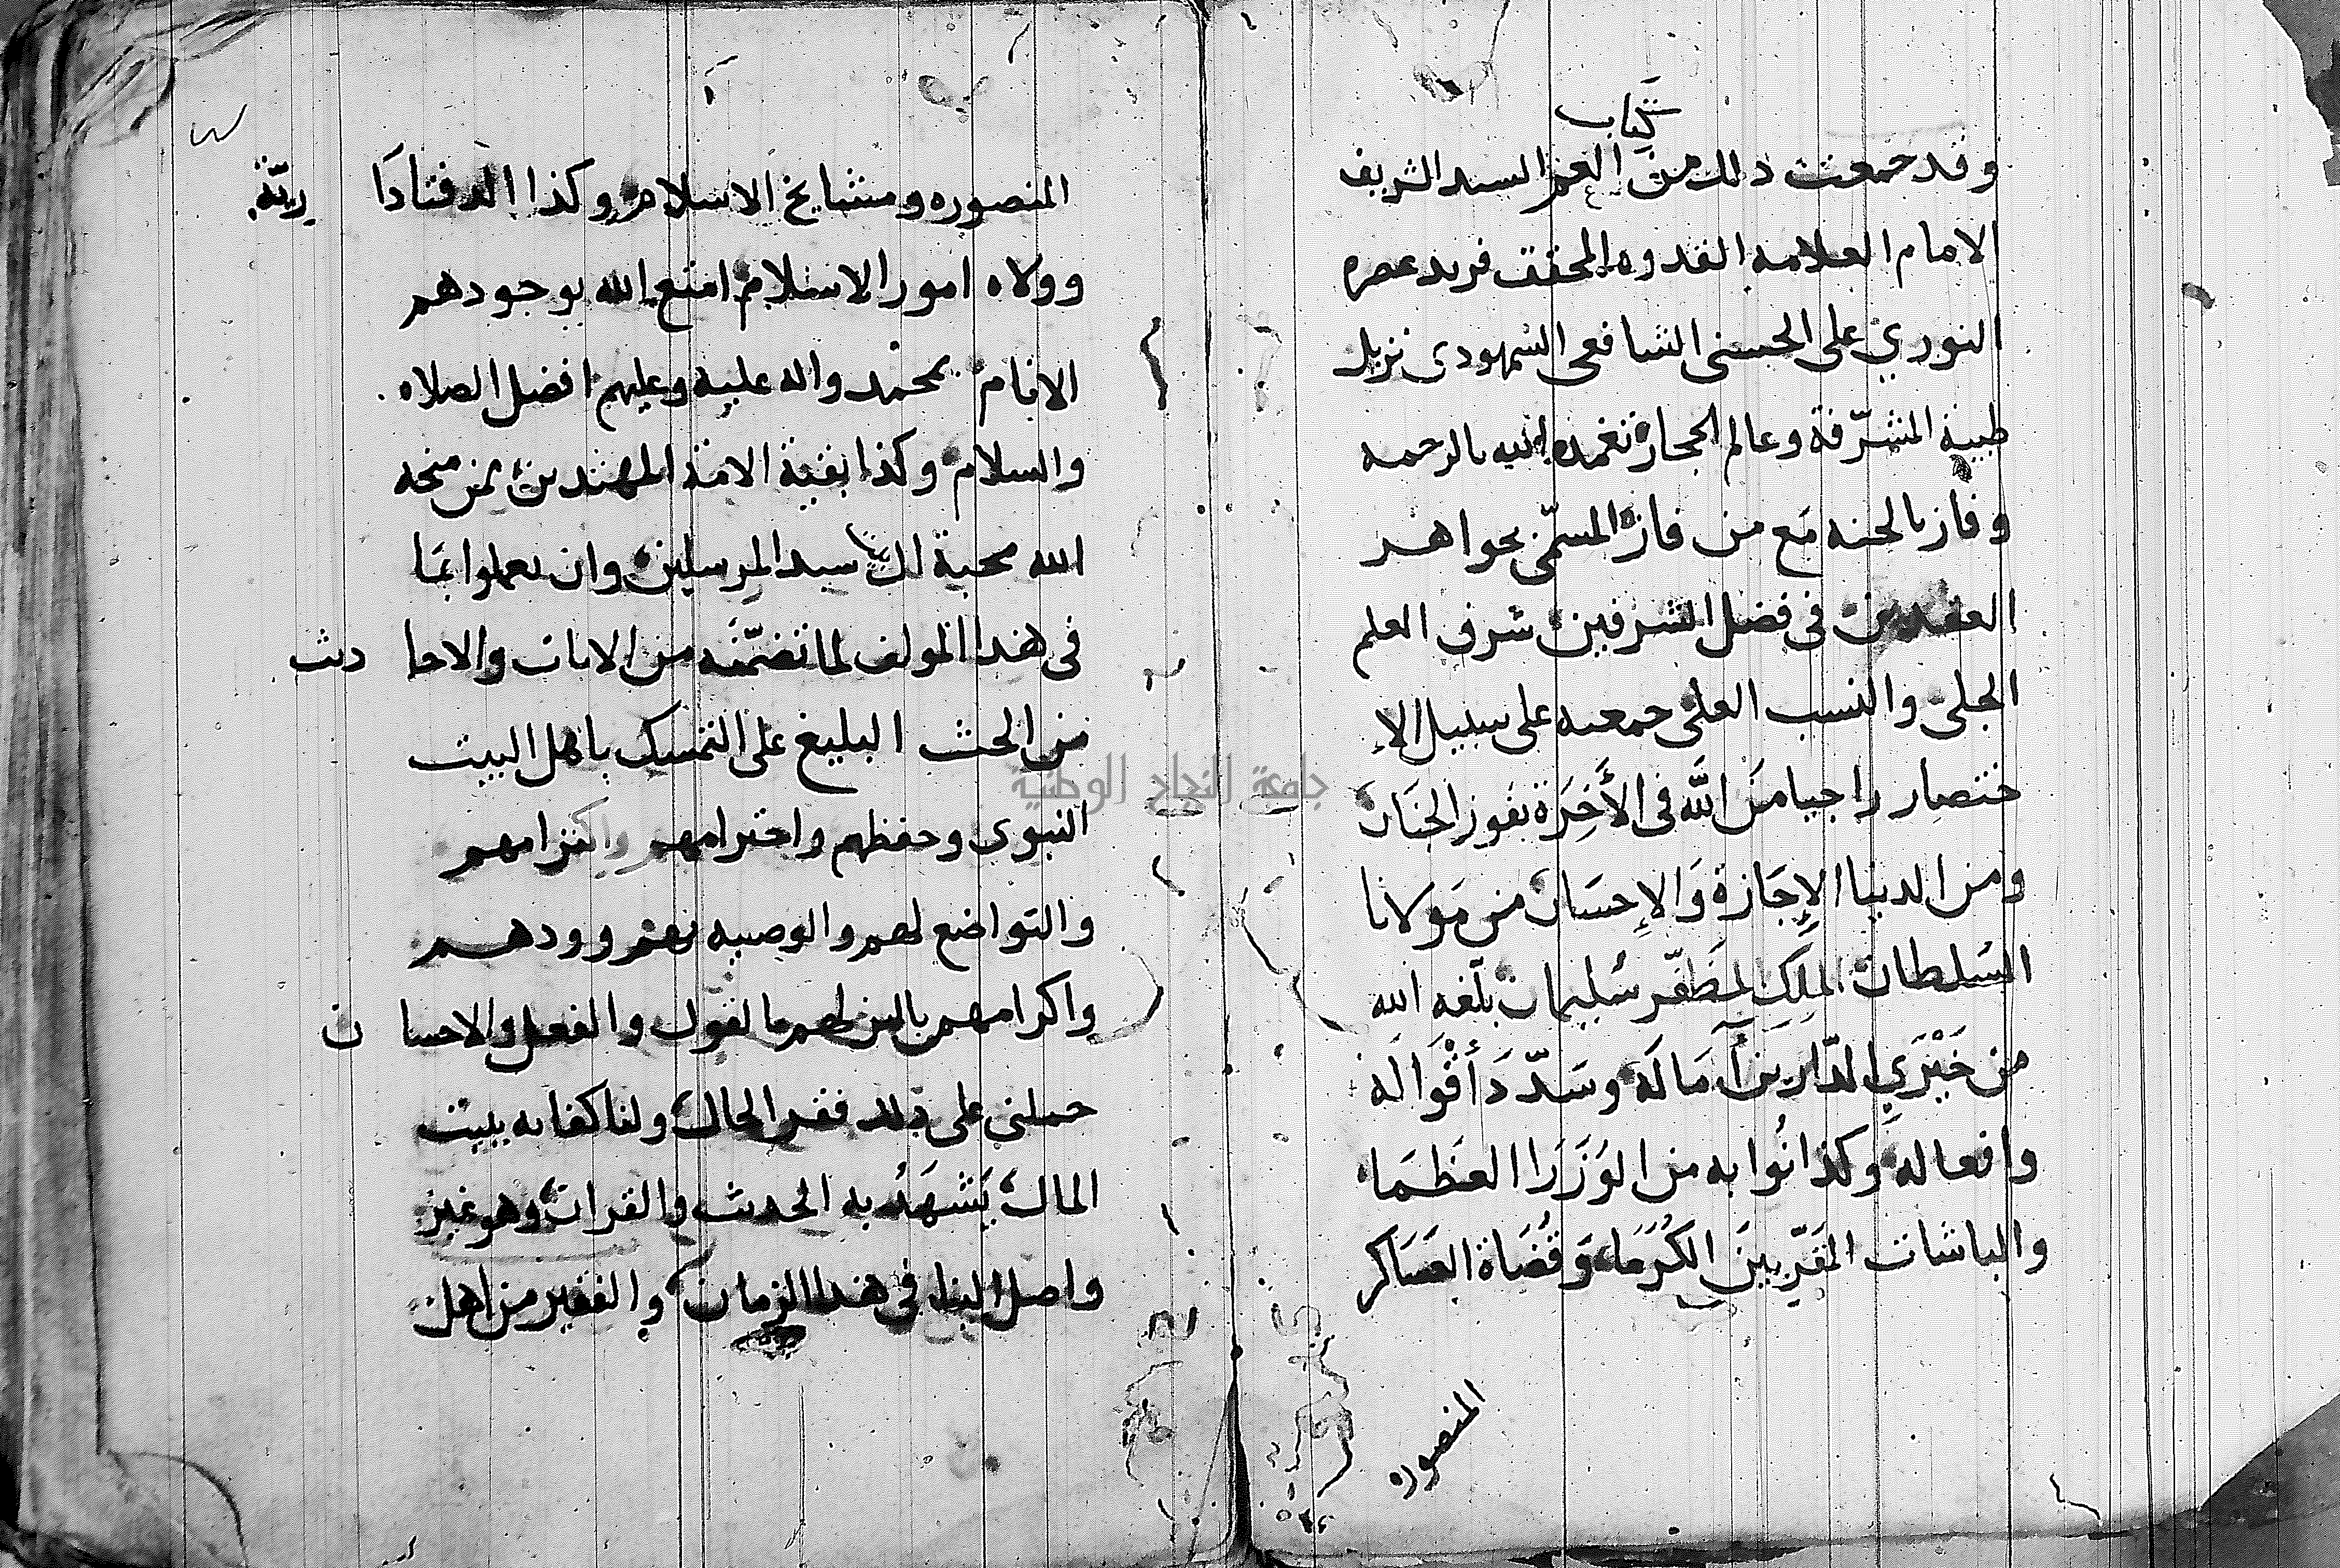 كتاب
وقد جمعت ذلك من العم السيد الشريف
الامام العلامه القدوه المحقق فريد عصره
النوري على الحسنى الشافعى السمهودى نزيل
طيبة المشرّفة وعالم الحجاز تغمده الله بالرحمه
وفاز بالجنه مَع من فاز المسمّى بجواهر
العقدين فى فضل الشرفين شرف العلم
الجلى والنسب العلى جمعته على سبيل الإ
ختصار راجيا منَ اللَّه فى الأَخِرَة بفوز الجنَان
ومن الدنيا الإِجَازة وَالإِحسَان من مَولانا
السُلطان الملِك المظفّر سُليمان بلّغه الله
من خَيْرَيِ الدّارين آمَالَه وسَدّدَ أَقْوَالَه
وافعاله وكذا نُوابه من الوُزَرَا العظمَا
والباشات المقَرّبينَ الكُرَمَاء وَقُضَاة العَسَاكر
المنصوره
المنصوره ومشايخ الاسلام وكذا الدفتادَا ريّة
وولاه امور الاسلام امتع الله بوجودهم
الانام بمحمد واله عليه وعليهم افضل الصلاه
والسلام وكذا بقية الامة المهتدين بمن منحه
الله محبة ال سيد المرسلين وان يعملوا بمَا
فى هذا المولف لما تضمّنه من الايات والاحا ديث
من الحث البليغ على التمسك باهل البيت
النبوى وحفظهم واحترامهم واكترامهم
والتواضع لهم والوصيه بهم وودهم
واكرامهم بالبر لهم بالقول والفعل والاحسا ن
حملنى على ذلك فقر الحال ولنا كفايه ببيت
المال يَشهَدُ به الحديث والقران وهو غير
واصل الينا فى هذا الزمان والفقير من اهل
جامعة النجاح الوطنية